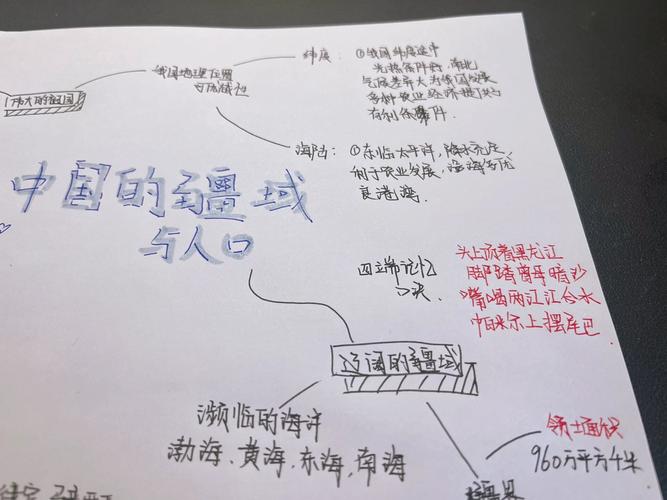 纬度：①我国纬度适中
光热条件好，南北
气候差异大为我国发展
多种农业经济提供了
有利条件。
我国地理位置
与优越性
伟大的祖国
海陆：①东临太平洋，降水充足，
利于农业发展，沿海多优
良港湾。
中国的疆域
与人口
四端记忆
口决
头上顶着黑龙江
脚踏曾母暗沙
嘴喝两江江合水
帕米尔上摆尾巴
辽阔的疆域
濒临的海洋
渤海、黄海、东海、南海
领土面积
960万平方千米